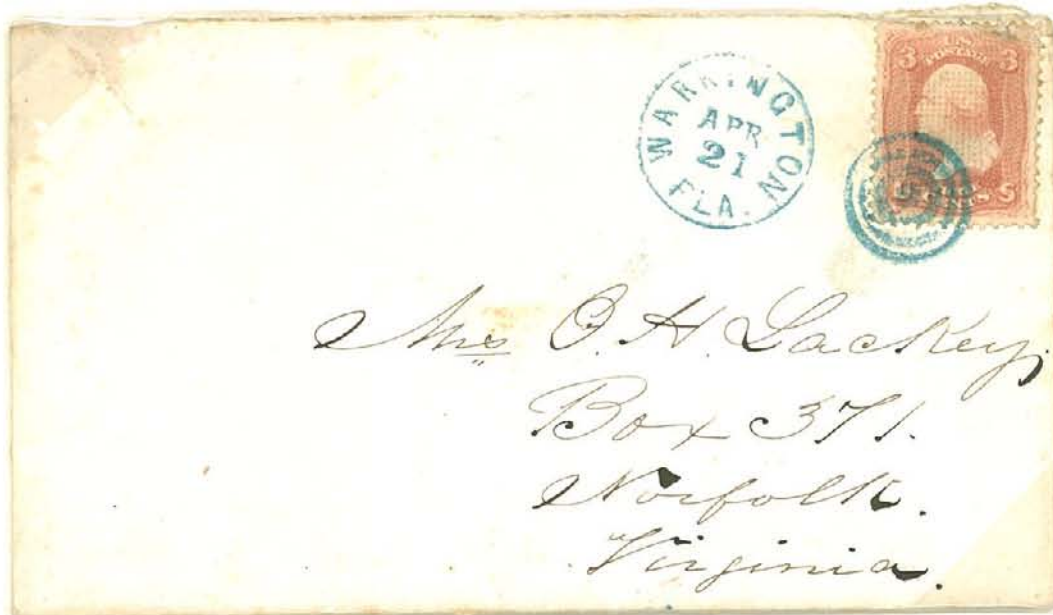 WARRINGTON
APR
21
FLA.
3 U.S. POSTAGE 3
Mrs O. H. Lackey,
Box 371.
Norfolk.
Virginia.